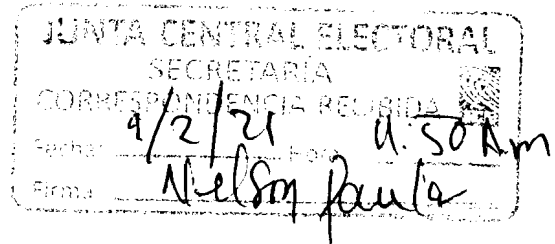 JUNTA CENTRAL ELECTORAL
SECRETARÍA
CORRESPONDENCIA RECIBIDA
Fecha: 9/2/21 Hora 11:50 Am
Firma Nielson Paula